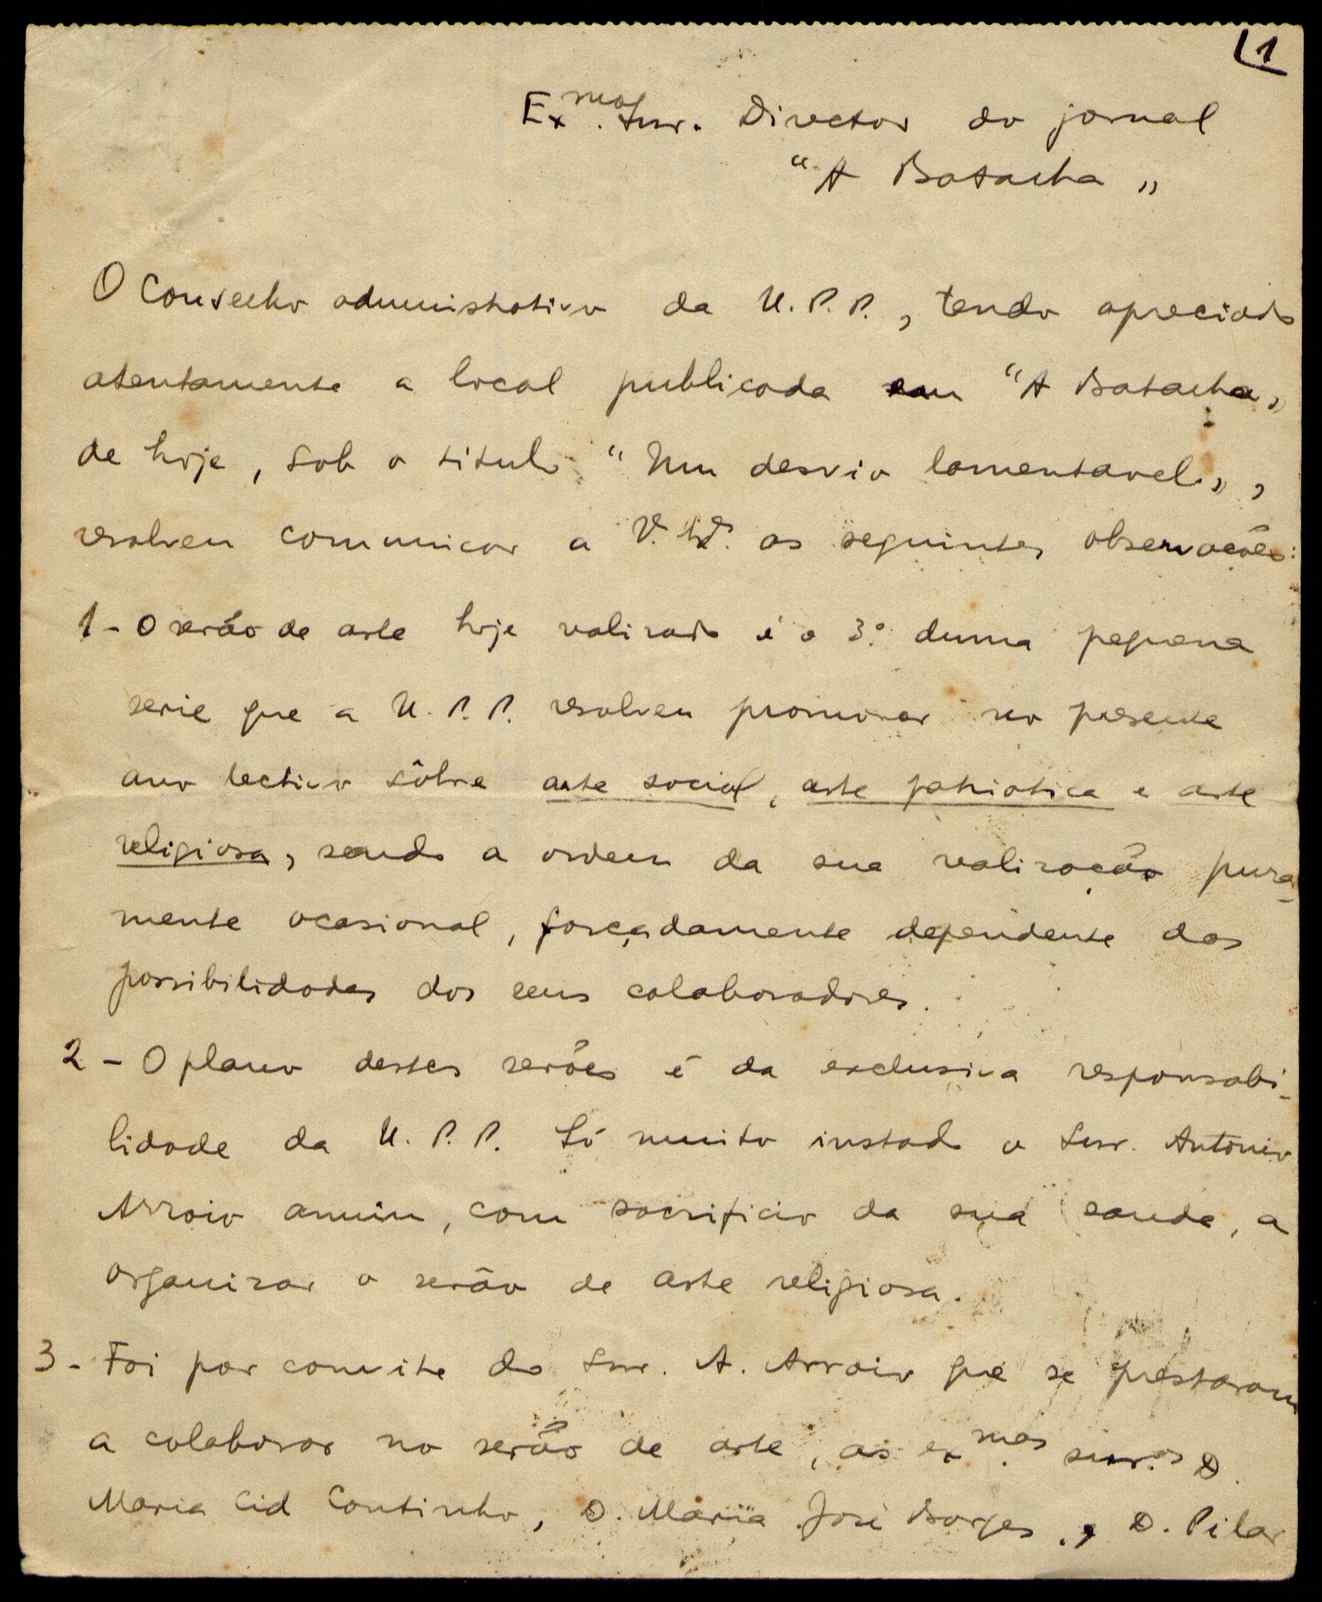 1
Ex.mo Snr. Director do jornal
"A Batalha"
O Conselho administrativo da U.P.P., tendo apreciado
atentamente a local publicada em "A Batalha"
de hoje, sob o titulo "Um desvio lamentavel",
resolveu communicar a V. Ex.ª as seguintes observações:
1 - O serão de arte hoje realizado é o 3.º duma pequena
serie que a U.P.P. resolveu promover no presente
ano lectivo sôbre arte social, arte patriotica e arte
religiosa, sendo a ordem da sua realização pura-
mente ocasional, forçadamente dependente das
possibilidades dos seus colaboradores.
2 - O plano destes serões é da exclusiva responsabi-
lidade da U.P.P. Só muito instado o Snr. Antonio
Arroio anuiu, com sacrificio da sua saude, a
organizar o serão de arte religiosa.
3 - Foi por convite do Snr. A. Arroio que se prestaram
a colaborar no serão de arte, as ex.mas snr.as D.
Maria Cid Coutinho, D. Maria José Borges, D. Pilar